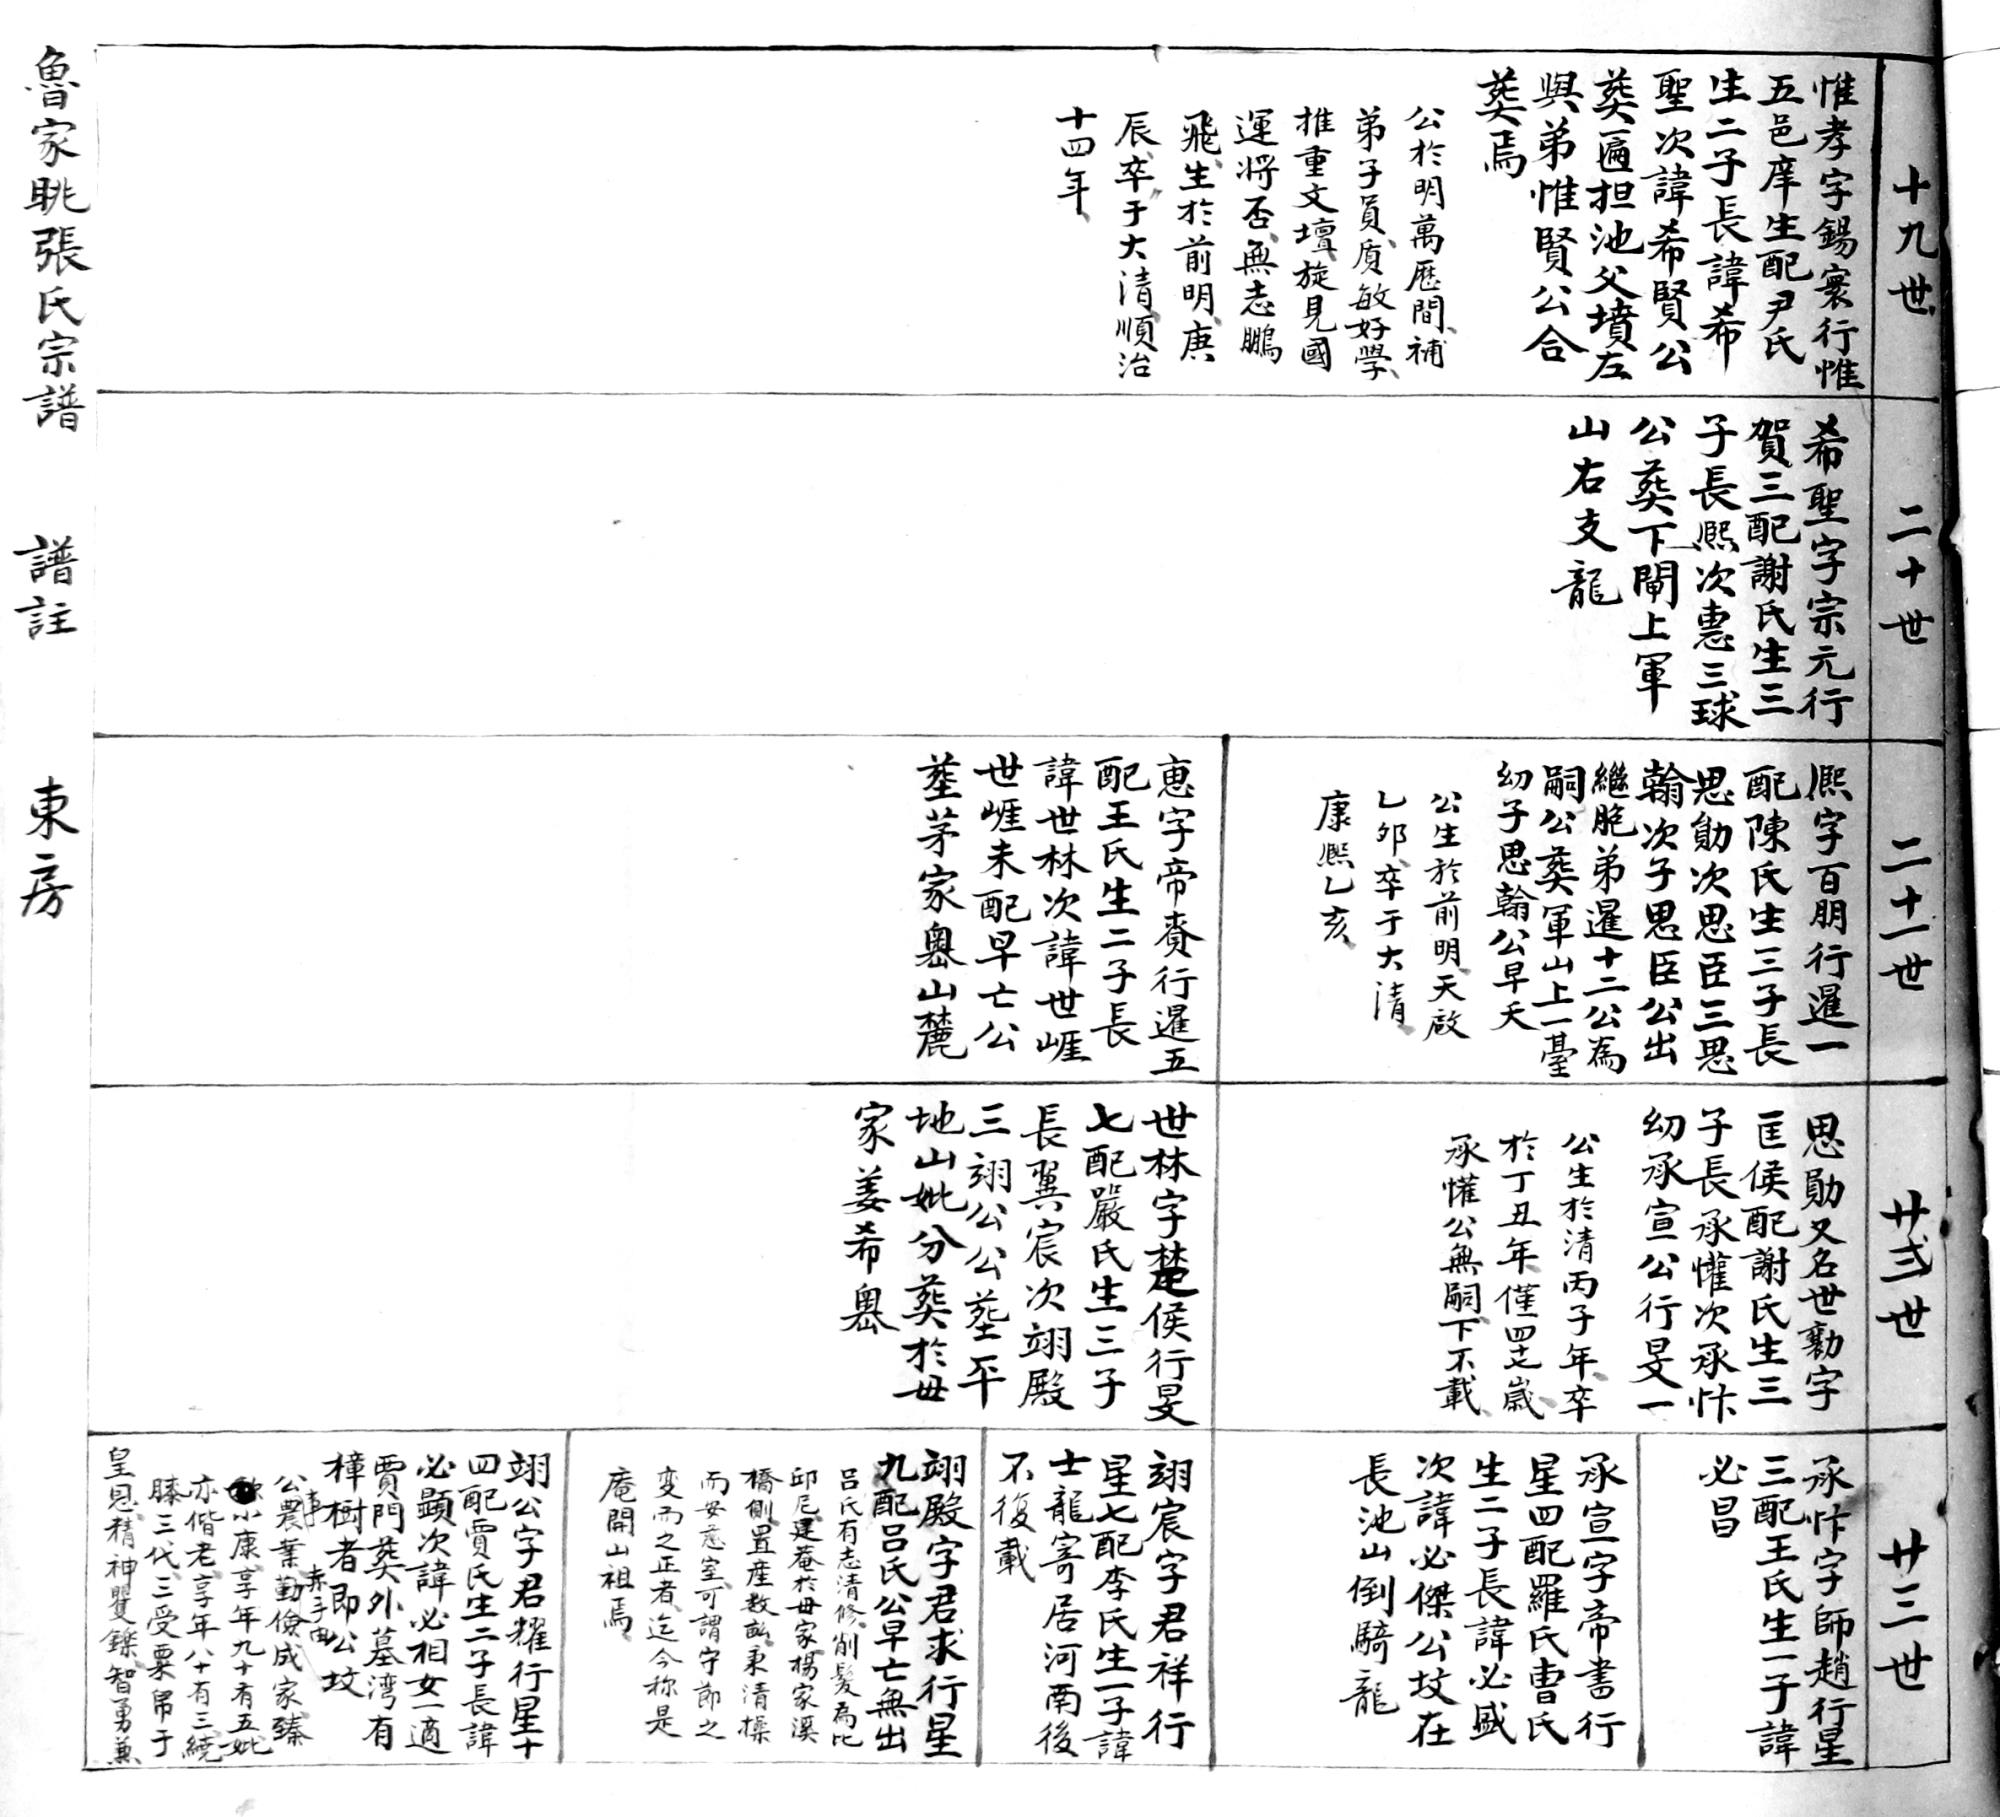 十九世
惟孝字錫寰行惟
五邑庠生配尹氏
生二子長諱希
聖次諱希賢公
葬匾担池父墳左
與弟惟賢公合
葬焉
公於明萬歷間、補
弟子員、質敏好學、
推重文壇、旋見國
運將否、無志鵬
飛、生於前明、庚
辰、卒于大清、順治
十四年、
二十世
希聖字宗元行
賀三配謝氏生三
子長熙次惠三球
公葬下閘上軍
山右支龍
二十一世
熈字百朋行暹一
配陳氏生三子長
思勛次思臣三思
翰次子思臣公出
繼胞弟暹十二公為
嗣公葬軍山上一臺
幼子思翰公早夭
公生於前明、天啟
乙卯、卒于大清、
康熈乙亥、
惠字帝賚行暹五
配王氏生二子長
諱世林次諱世崕
世崕未配早亡公
塟茅家嶴山麓
廿弍世
思勛又名世勷字
匡侯配謝氏生三
子長承懽次承忭
幼承宣公行旻一
公生於清丙子年、卒
於丁丑年、僅四七歲、
承懽公無嗣、下不載、
世林字楚侯行旻
七配嚴氏生三子
長翼宸次翊殿
三翊公公塟平
地山妣分葬於毋
家姜希嶴
廿三世
承忭字師趙行星
三配王氏生一子諱
必昌
承宣字帝書行
星四配羅氏曹氏
生二子長諱必盛
次諱必傑公坟在
長池山倒騎龍
翊宸字君祥行
星七配李氏生一子諱
士龍寄居河南後
不復載
翊殿字君求行星
九配呂氏公早亡無出
呂氏有志清修、削髮為比
邱尼、建菴於毋家、楊家溪
橋側、置産数畝、秉清操
而安慈室、可謂守節之
变而之正者、迄今称是
庵開山祖焉、
翊公字君耀行星十
四配賈氏生二子長諱
必顯次諱必相女一適
賈門葬外墓湾有
樟樹者即公坟
公農業勤儉成家、臻
事 赤手由
小康、享年九十有五妣
亦偕老、享年八十有三繞
膝三代、三受粟帛于
皇恩、精神矍鑠、智勇兼
魯家眺張氏宗譜
譜註
東房